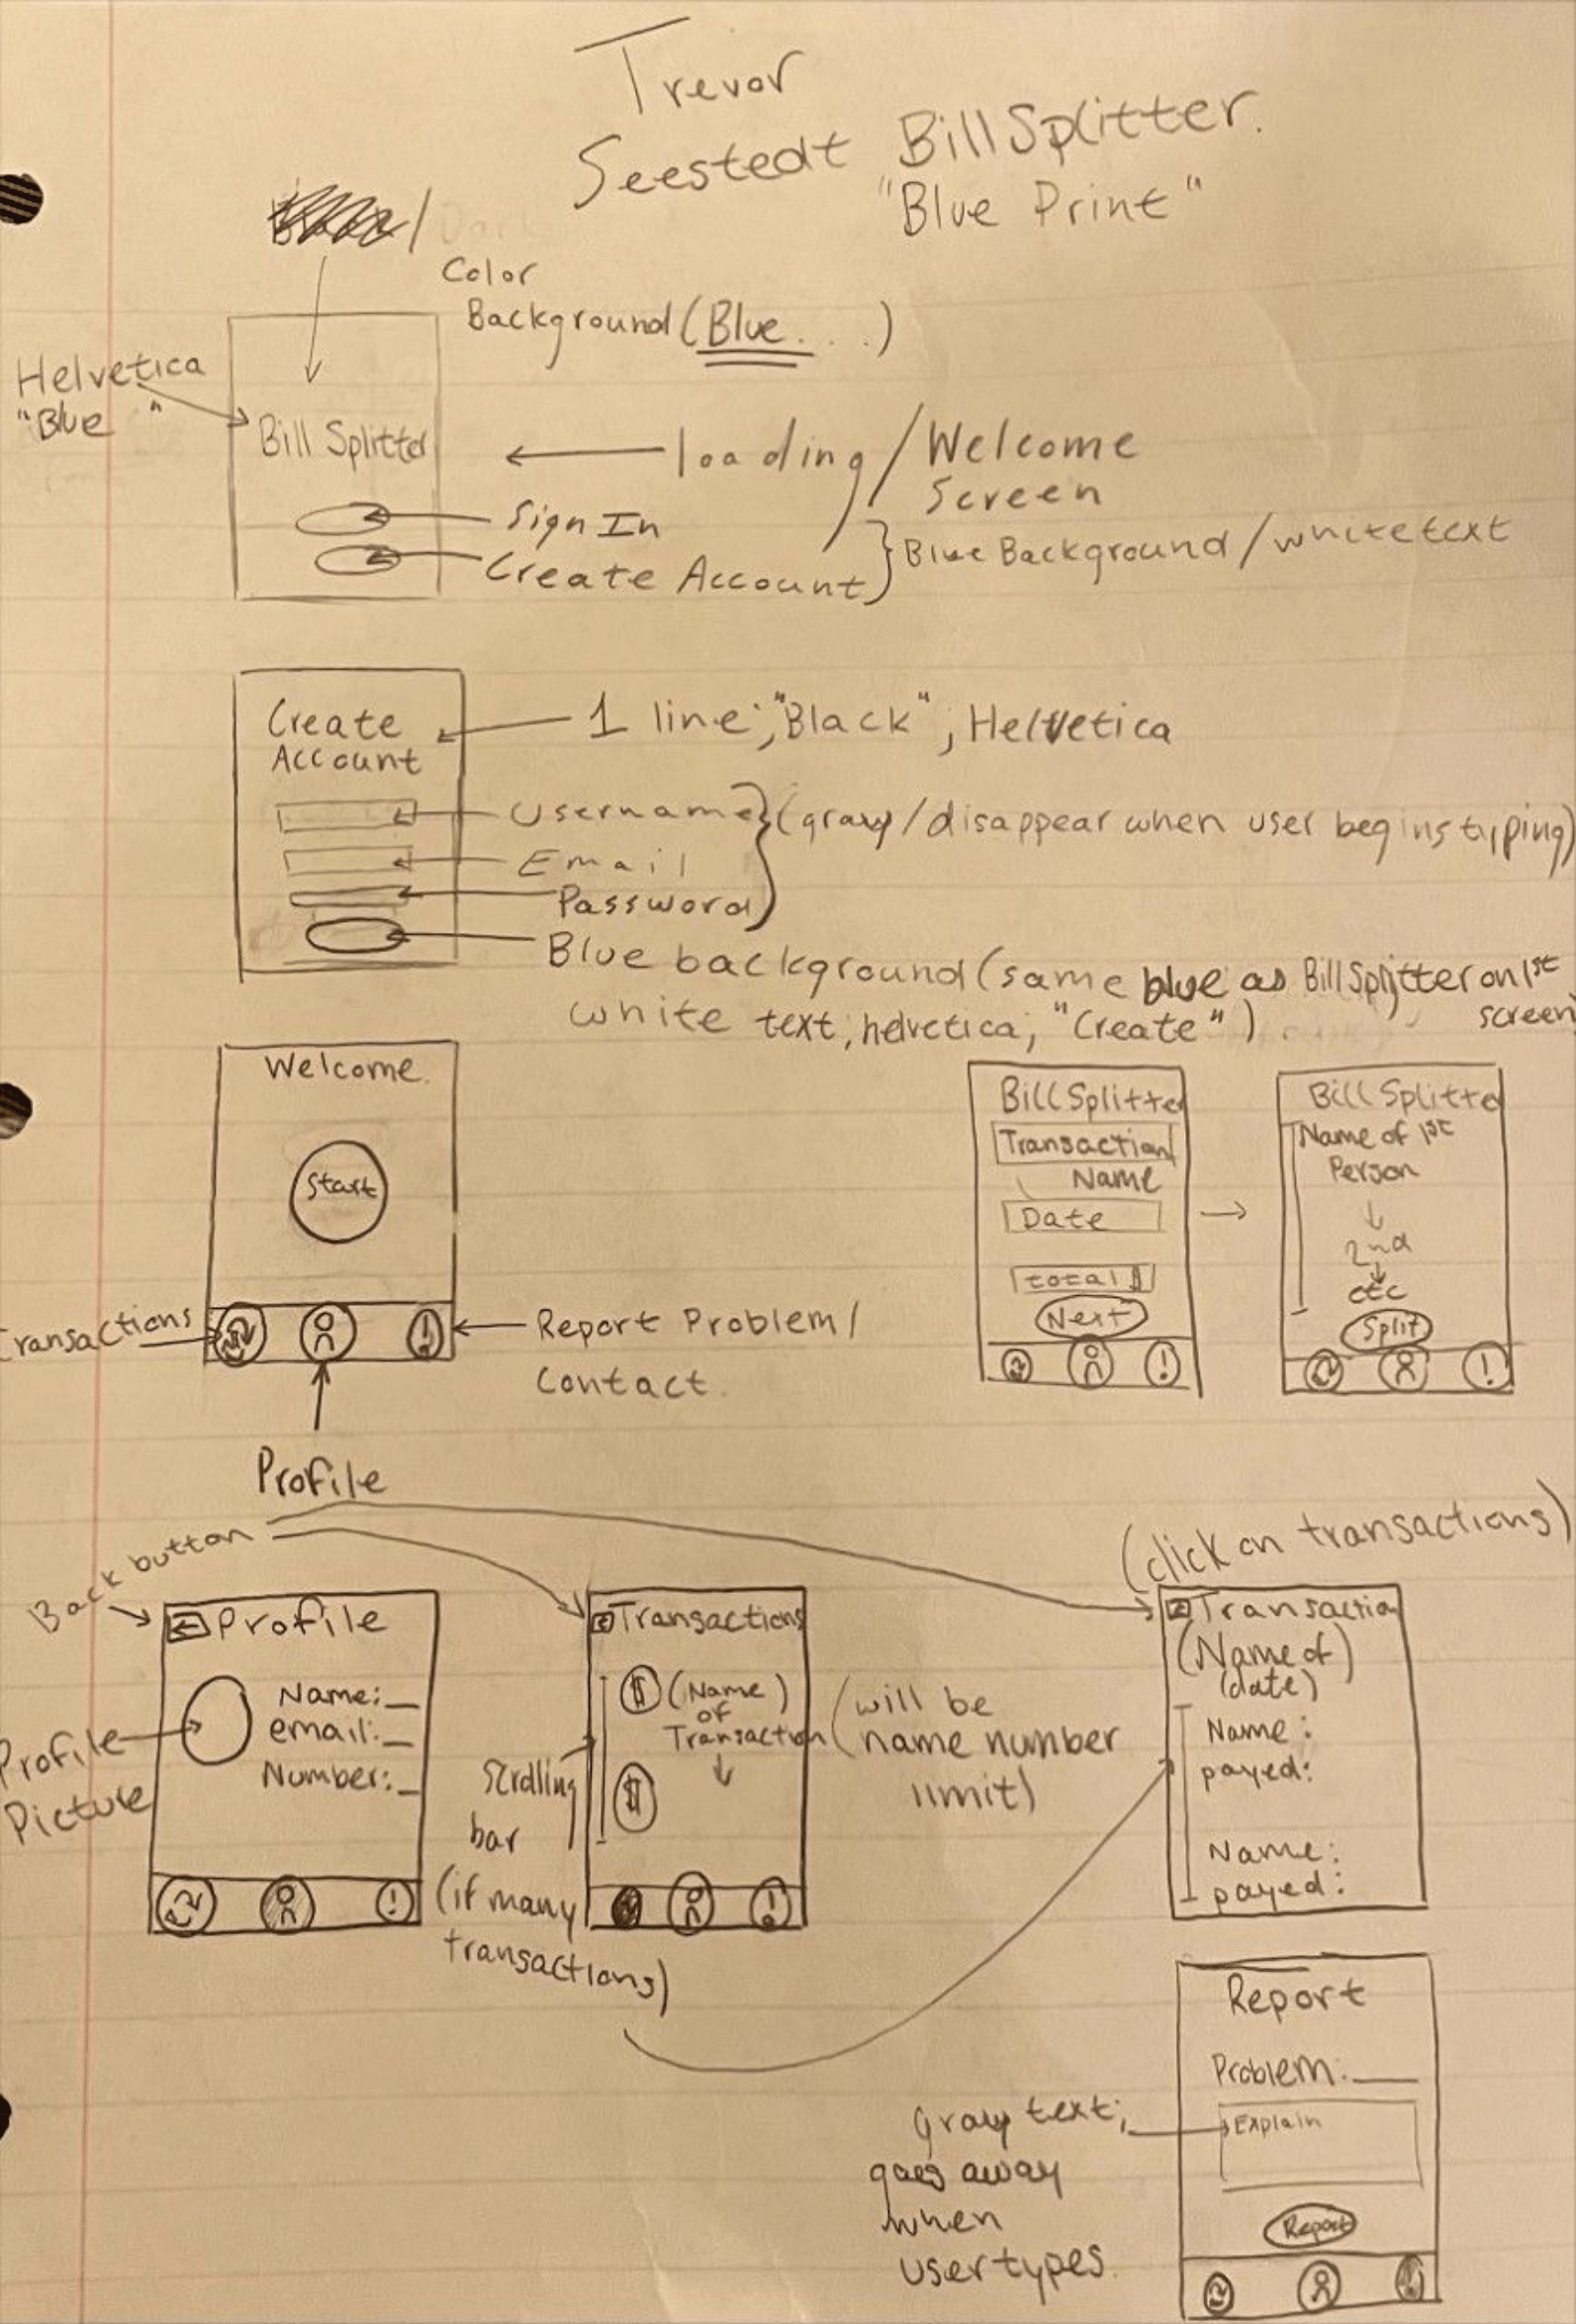 Trevor
Seestedt BillSplitter.
"Blue Print"
Color
Background (Blue. . .)
Helvetica
"Blue "
Bill Splitter
loading / Welcome
Screen
Sign In
Create Account
Blue Background / white text
Create
Account
1 line; "Black", Helvetica
Username
(gray / disappear when user begins typing)
Email
Password
Blue background (same blue as BillSplitter on 1st
screen
white text, helvetica, "Create")
Welcome.
Start
transactions
Report Problem /
Contact.
Profile
BillSplitter
Transaction
Name
Date
total $
Next
Bill Splitter
Name of 1st
Person
2nd
etc
Split
Back button
Profile
Name:_
email:_
Number:_
Profile
Picture
Transactions
$ (Name)
of
Transaction
$
(will be
name number
limit)
Scrolling
bar
(if many
transactions)
(click on transactions)
Transaction
(Name of)
(date)
Name:
payed:
Name:
payed:
Report
Problem:___
Explain
Report
Gray text;
goes away
when
user types.